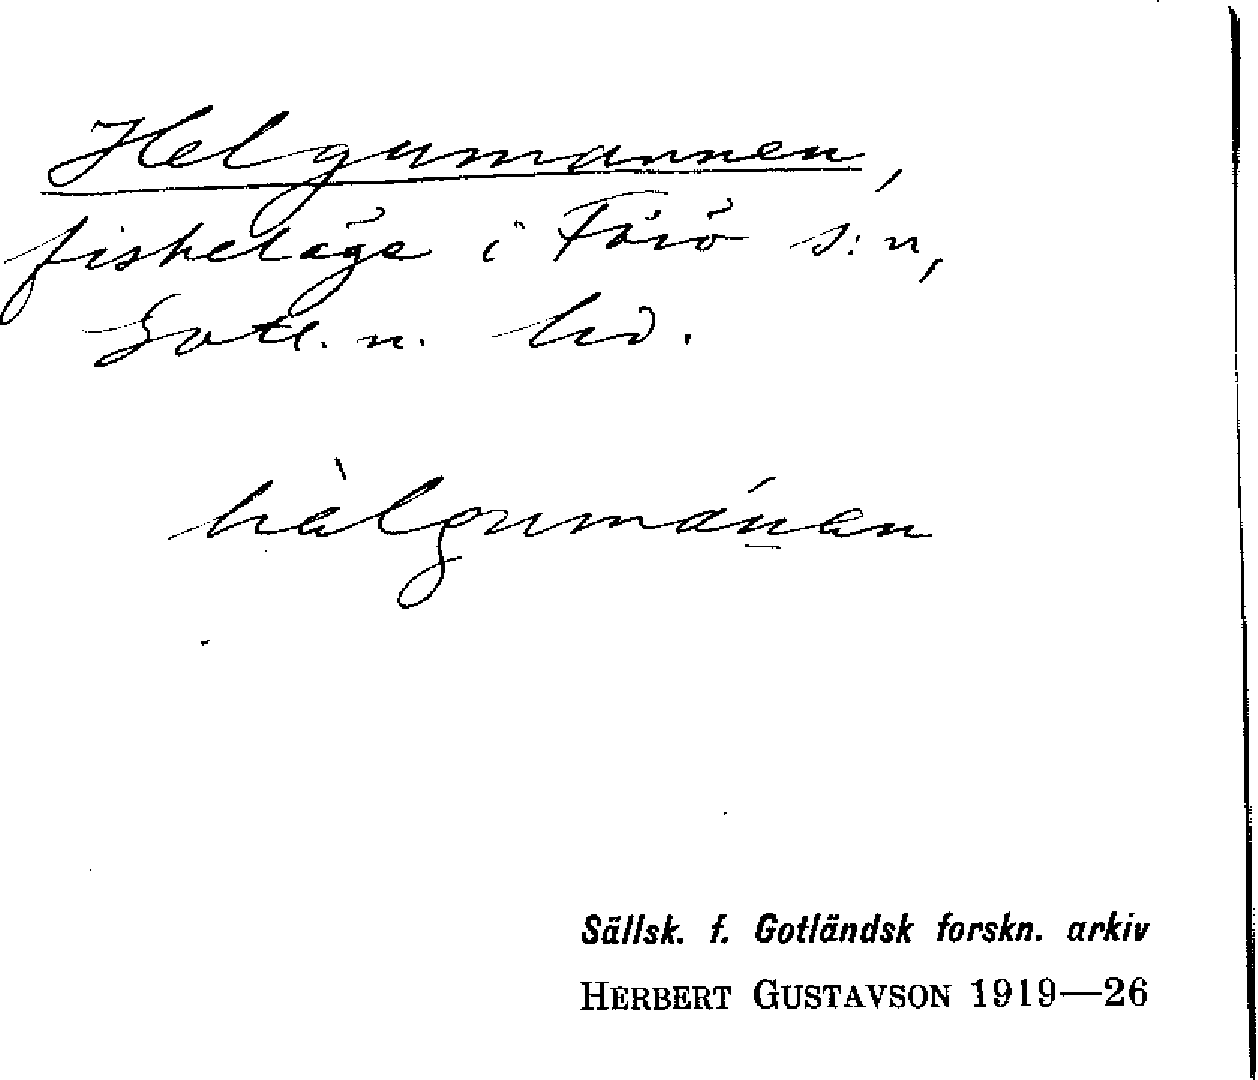 Helgumannen,
fiskeläge i Fårö s:n,
Gotl. n. hd.
hàlgumánen
Sällsk. f. Gotländsk forskn. arkiv
HERBERT GUSTAVSON 1919—26